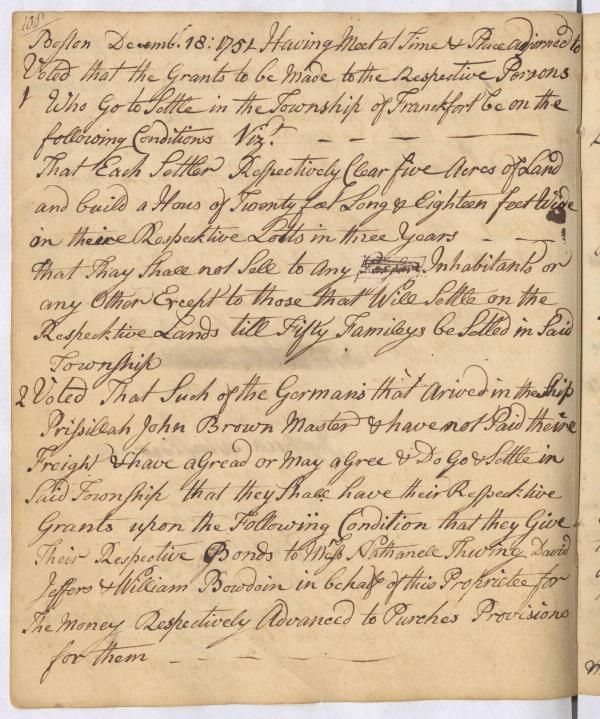 108
Boston Decembr. 18: 1751 Having Meet at Time & Place adjorned to
Voted that the Grants to be Made to the Respective Persons
1 Who Go to Settle in the Township of Franckfort be on the
following Conditions Vizt. — — — —
That Each Settler Respectively Clear five Acres of Land
and build a Hous of Twenty feet Long & Eighteen feet Wide
on theire Respecktive Lotts in three Years — — —
that Thay Shall not Sell to Any Inhabitants or
any Other Except to those that Will Settle on the
Respecktive Lands till Fifty Famileys be Setled in Said
Township
2 Voted That Such of the Germans that Arived in the Ship
Prissillah John Brown Master & have not Paid theire
Freight & have aGread or May aGree & Do Go & Settle in
Said Township that they Shall have their Respecktive
Grants upon the Following Condition that they Give
Their Respective Bonds to Mess Nathanell Thwing David
Jeffers & William Bowdoin in behalf of this Proprietee for
The Money Respectively Advanced to Purches Provisions
for them — — — —